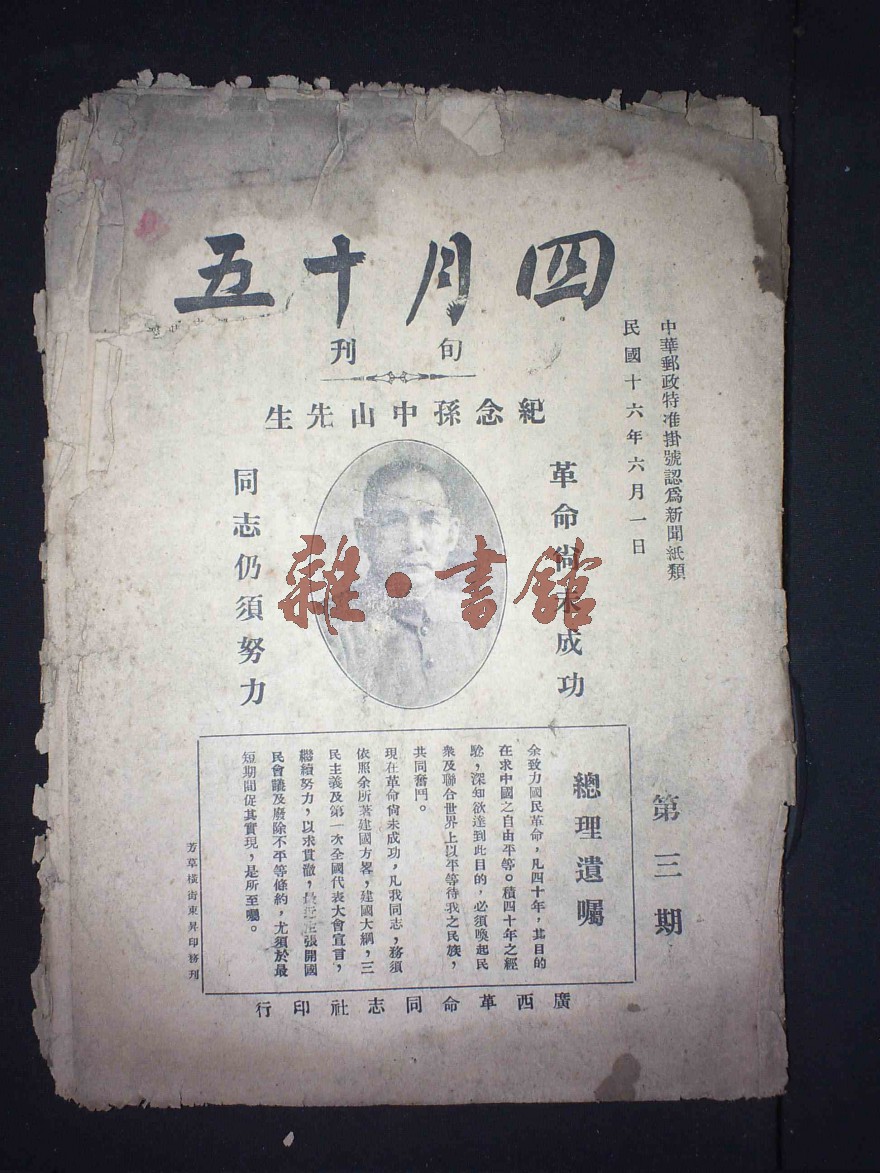 四月十五
旬刊
紀念孫中山先生
中華郵政特准掛號認爲新聞紙類
民國十六年六月一日
革命尚未成功
同志仍須努力
雜·書館
第三期
總理遺囑
余致力國民革命，凡四十年，其目的
在求中國之自由平等。積四十年之經
驗，深知欲達到此目的，必須喚起民
衆及聯合世界上以平等待我之民族，
共同奮鬥。
現在革命尚未成功，凡我同志，務須
依照余所著建國方畧，建國大綱，三
民主義及第一次全國代表大會宣言，
繼續努力，以求貫徹，最近主張開國
民會議及廢除不平等條約，尤須於最
短期間促其實現，是所至囑。
芳草橫街東昇印務刊
廣西革命同志社印行